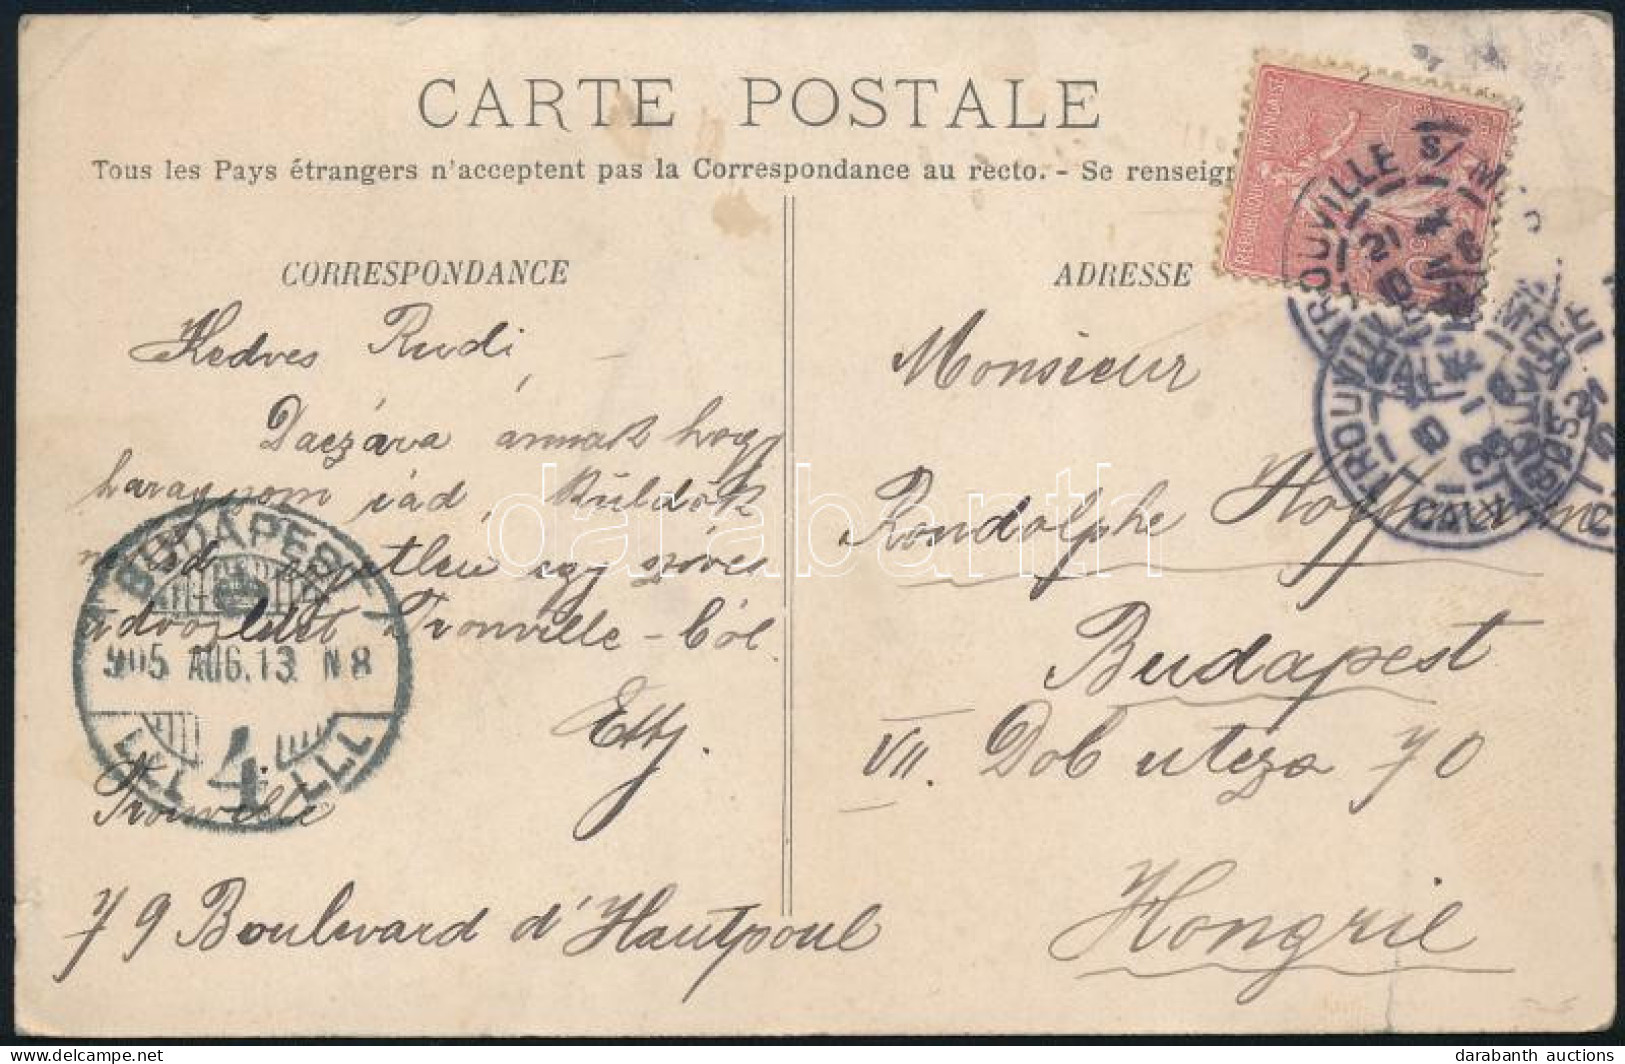 CARTE POSTALE
Tous les Pays étrangers n'acceptent pas la Correspondance au recto. - Se renseign
CORRESPONDANCE
Kedves Rudi,
Daczára annak hogy
haragszom rád, küldök
egy szíves
üdvözletet Trouville-ból.
Etty.
Trouville
79 Boulevard d'Hautpoul
ADRESSE
Monsieur
Rondolphe Hoffmann
Budapest
VII. Dob utcza 70
Hongrie
REPUBLIQUE FRANÇAISE
TROUVILLE S/ M
21
TROUVILLE
CALV
BUDAPEST
905 AUG.13 N8
4
darabanth
darabanth auctions